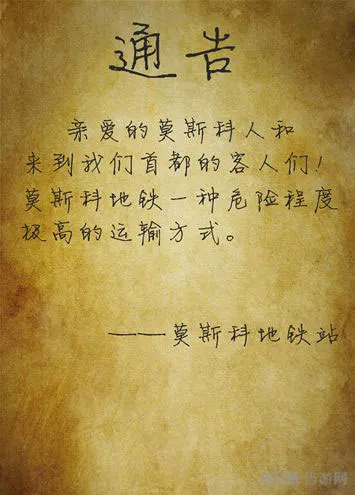 通告
亲爱的莫斯科人和
来到我们首都的客人们！
莫斯科地铁一种危险程度
极高的运输方式。
——莫斯科地铁站
当游网